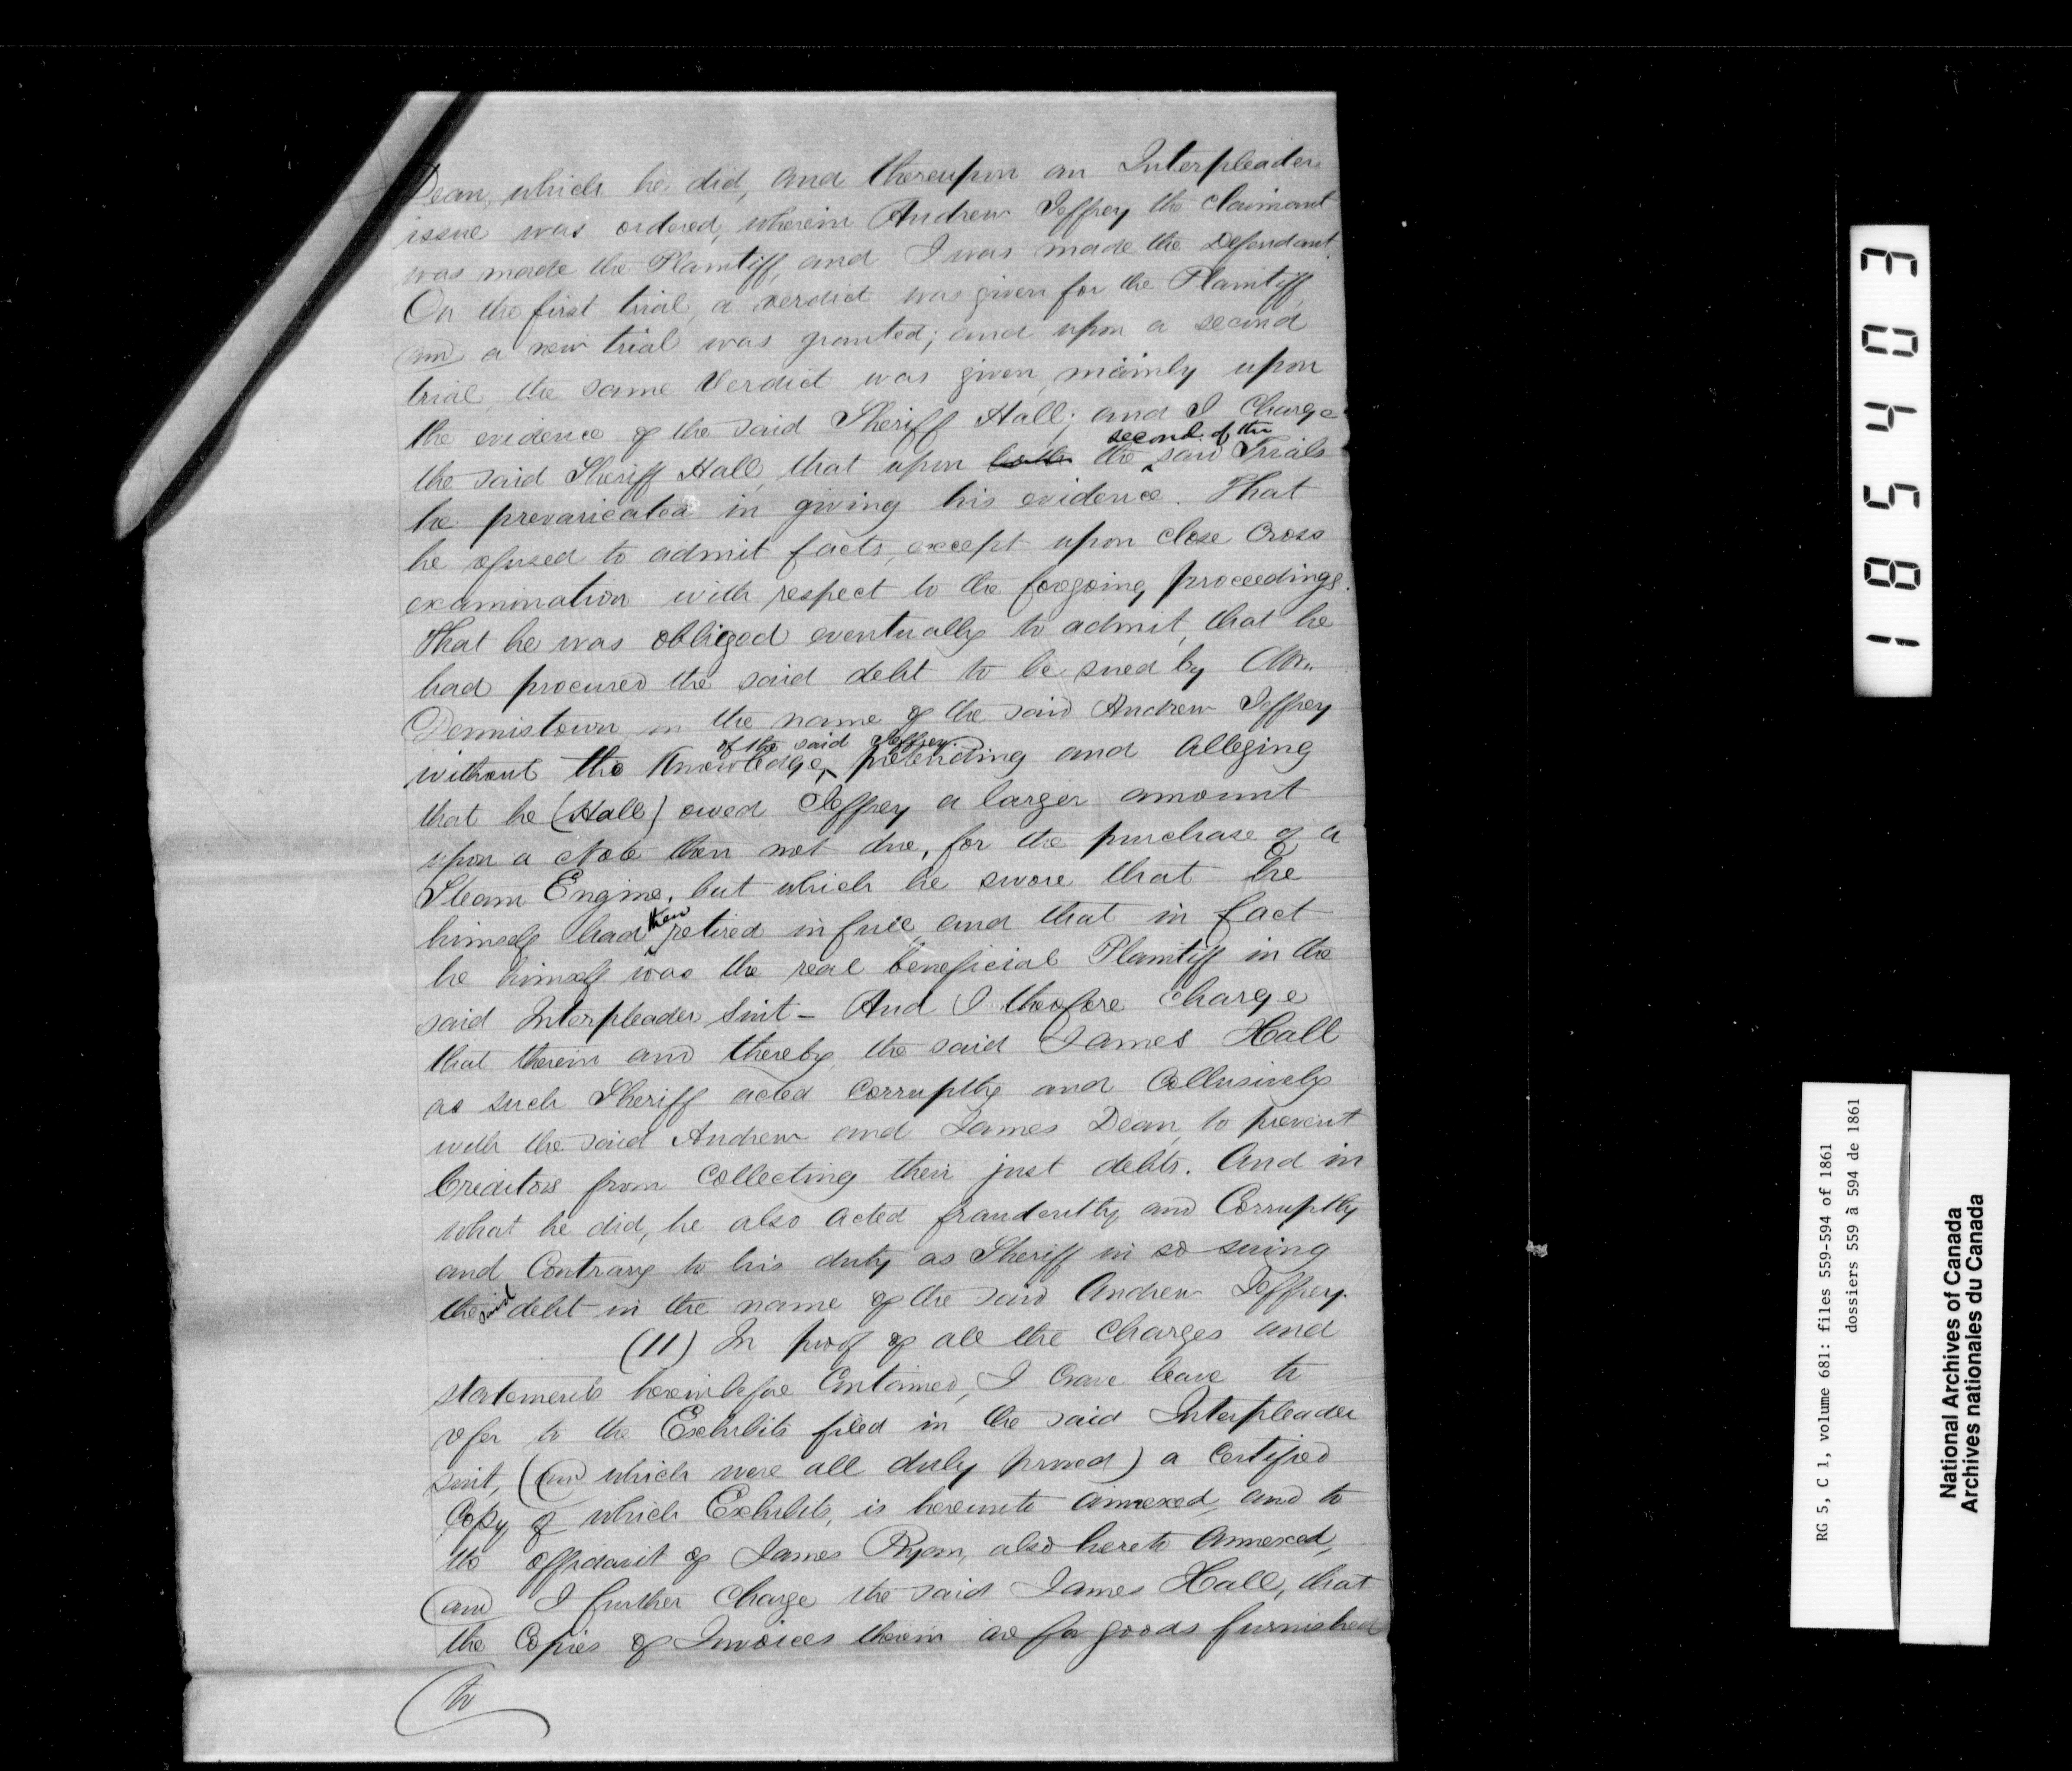 Dean, which he did, and thereupon an Interpleader
issue was ordered, wherein Andrew Jeffrey the Claimant
was made the Plaintiff, and I was made the Defendant.
On the first trial, a verdict was given for the Plaintiff,
and a new trial was granted; and upon a second
trial, the same Verdict was given, mainly upon
the evidence of the said Sheriff Hall; and I Charge
the said Sheriff Hall, that upon both the second of the said Trials
he prevaricated in giving his evidence. That
he refused to admit facts, except upon close Cross
examination with respect to the foregoing proceedings.
That he was obliged eventually to admit, that he
had procured the said debt to be sued by Mr.
Dennistown in the name of the said Andrew Jeffrey
without the Knowledge of the said Jeffrey, pretending and alleging
that he (Hall) owed Jeffrey a larger amount
upon a Note then not due, for the purchase of a
Steam Engine, but which he swore that he
himself had then retired in full, and that in fact
he himself was the real beneficial Plaintiff in the
said Interpleader Suit - And I therefore charge
that therein and thereby the said James Hall
as such Sheriff acted Corruptly and Collusively
with the said Andrew and James Dean, to prevent
Creditors from Collecting their just debts. And in
what he did, he also acted fraudently and Corruptly
and Contrary to his duty as Sheriff in so suing
the said debt in the name of the said Andrew Jeffrey.
(11) In proof of all the Charges and
statements hereinbefore Contained, I Crave leave to
refer to the Exhibits filed in the said Interpleader
suit, (and which were all duly proved) a Certified
Copy of which Exhibits, is hereunto annexed, and to
the affidavit of James Ryan, also hereto Annexed,
and I further Charge the said James Hall, that
the Copies of Invoices therein are for goods furnished
to
185403
RG 5, C 1, volume 681: files 559-594 of 1861
dossiers 559 à 594 de 1861
National Archives of Canada
Archives nationales du Canada